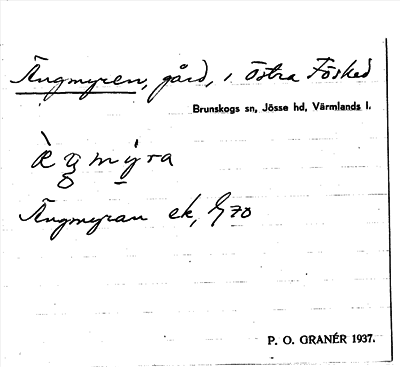 Ängmyren, gård, i Östra Fösked
Brunskogs sn, Jösse hd, Värmlands l.
Ängmyran ek, 70
P. O. GRANÉR 1937.